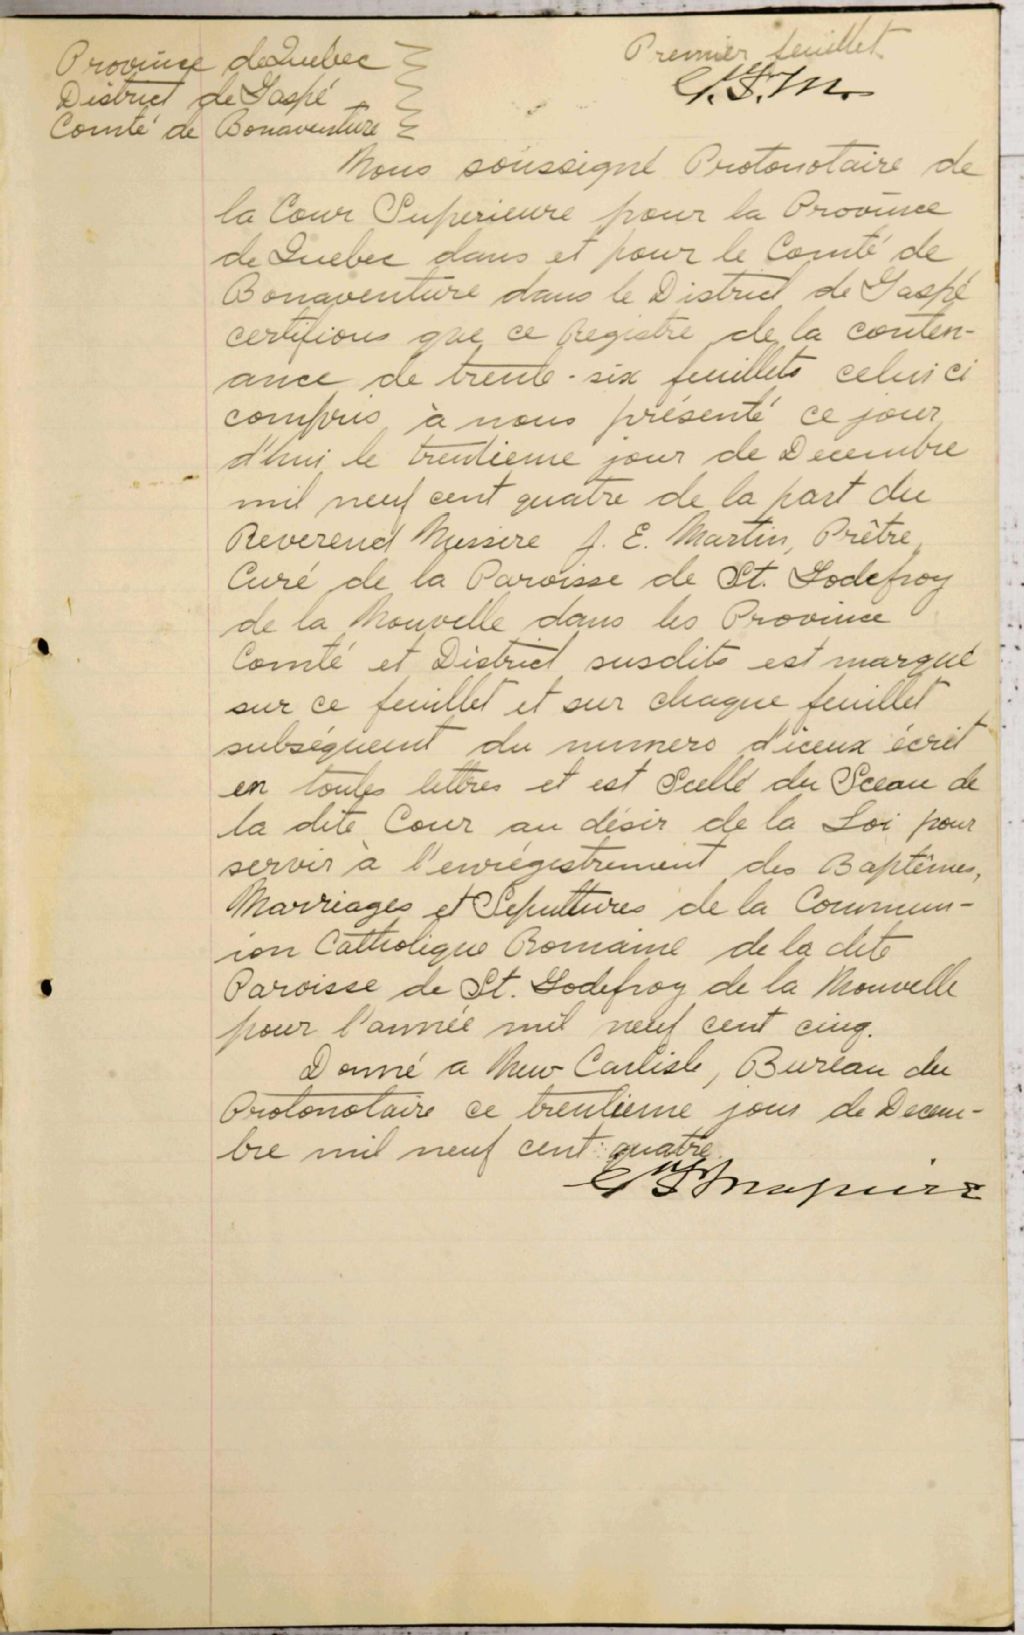 Province de Quebec
District de Gaspé
Comté de Bonaventure
Premier feuillet
Nous soussigné Protonotaire de
la Cour Superieure pour la Province
de Quebec dans et pour le Comté de
Bonaventure dans le District de Gaspé
certifions que ce Registre de la conten-
ance de trente-six feuillets celui ci
compris à nous présenté ce jour
d'hui le trentieme jour de Decembre
mil neuf cent quatre de la part du
Reverend Messire J. E. Martin, Prêtre,
Curé de la Paroisse de St. Godefroy
de la Nouvelle dans les Province
Comté et District susdits est marqué
sur ce feuillet et sur chaque feuillet
subséquent du numero d'iceux écrit
en toutes lettres et est Scellé du Sceau de
la dite Cour au désir de la Loi pour
servir à l'enrégistrement des Baptêmes,
Marriages et Sepultures de la Commun-
ion Catholique Romaine de la dite
Paroisse de St. Godefroy de la Nouvelle
pour l'année mil neuf cent cinq.
Donné a New Carlisle, Bureau du
Protonotaire ce trentieme jour de Decem-
bre mil neuf cent quatre.